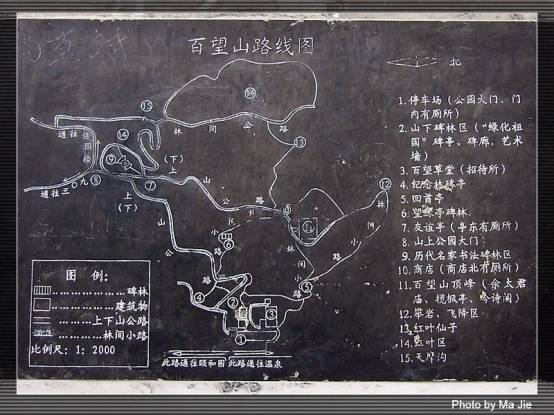 百望山路线图
北
1. 停车场（公园大门、门
内有厕所）
2. 山下碑林区（"绿化祖
国"碑亭、碑廊、艺术
墙）
3. 百望草堂（招待所）
4. 纪念林碑亭
5. 回首亭
6. 望绿亭碑林
7. 友谊亭（亭东有厕所）
8. 山上公园大门
9. 历代名家书法碑林区
10. 商店（商店北有厕所）
11. 百望山顶峰（佘太君
庙、揽枫亭、吟诗阁）
12. 攀岩、飞降区
13. 红叶仙子
14. 黄叶区
15. 天摩沟
15
14
林间公路
13
12
通往
14
9
（下）
上
7
8
通往三〇九
上
（下）
山公路
山公路
5
11
林间小路
林阴小路
6
小路
4
2
3
5
1
图 例:
碑林
建筑物
上下山公路
林间小路
比例尺: 1: 2000
此路通往颐和园
此路通往温泉
Photo by Ma Jie